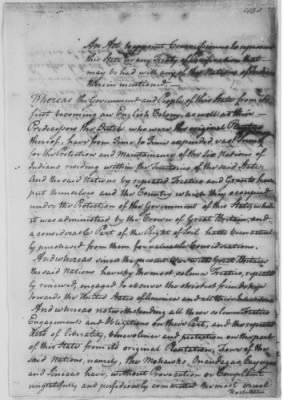 An Act to appoint Commissioners to represent
this State in any Treaty of Pacification that
may be had with any of the Nations of Indians
therein mentioned
Whereas the Government and People of this State from its
first becoming an English Colony, as well as their
Predecessors the Dutch who were the original Planters
thereof, have from Time to Time expended vast Sums
for the Protection and Maintenance of the Six Nations of
Indians residing within the Territories of the said State
And the said Nations by repeated Treaties and Grants have
put themselves and the Country which they occupied
under the Protection of the Government of this State, while
it was administered by the Crown of Great Britain, and
a considerable Part of the Right of Soil hath been actually
purchased from them for valuable Considerations.
And whereas since the present War with Great Britain
the said Nations have by the most solemn Treaties, repeated
by renewed, engaged to observe the strictest friendship
towards the United States of America and all their Inhabitants
And whereas notwithstanding all these solemn Treaties
Engagements and Obligations on their Part, and the repeated
Acts of Liberality, benevolence and protection on the part
of this State from its original Plantation, some of the
said Nations, namely, the Mohawks Onondagas Cayugas
and Senecas have, without Provocation or Complaint
ungratefully and perfidiously committed the most cruel